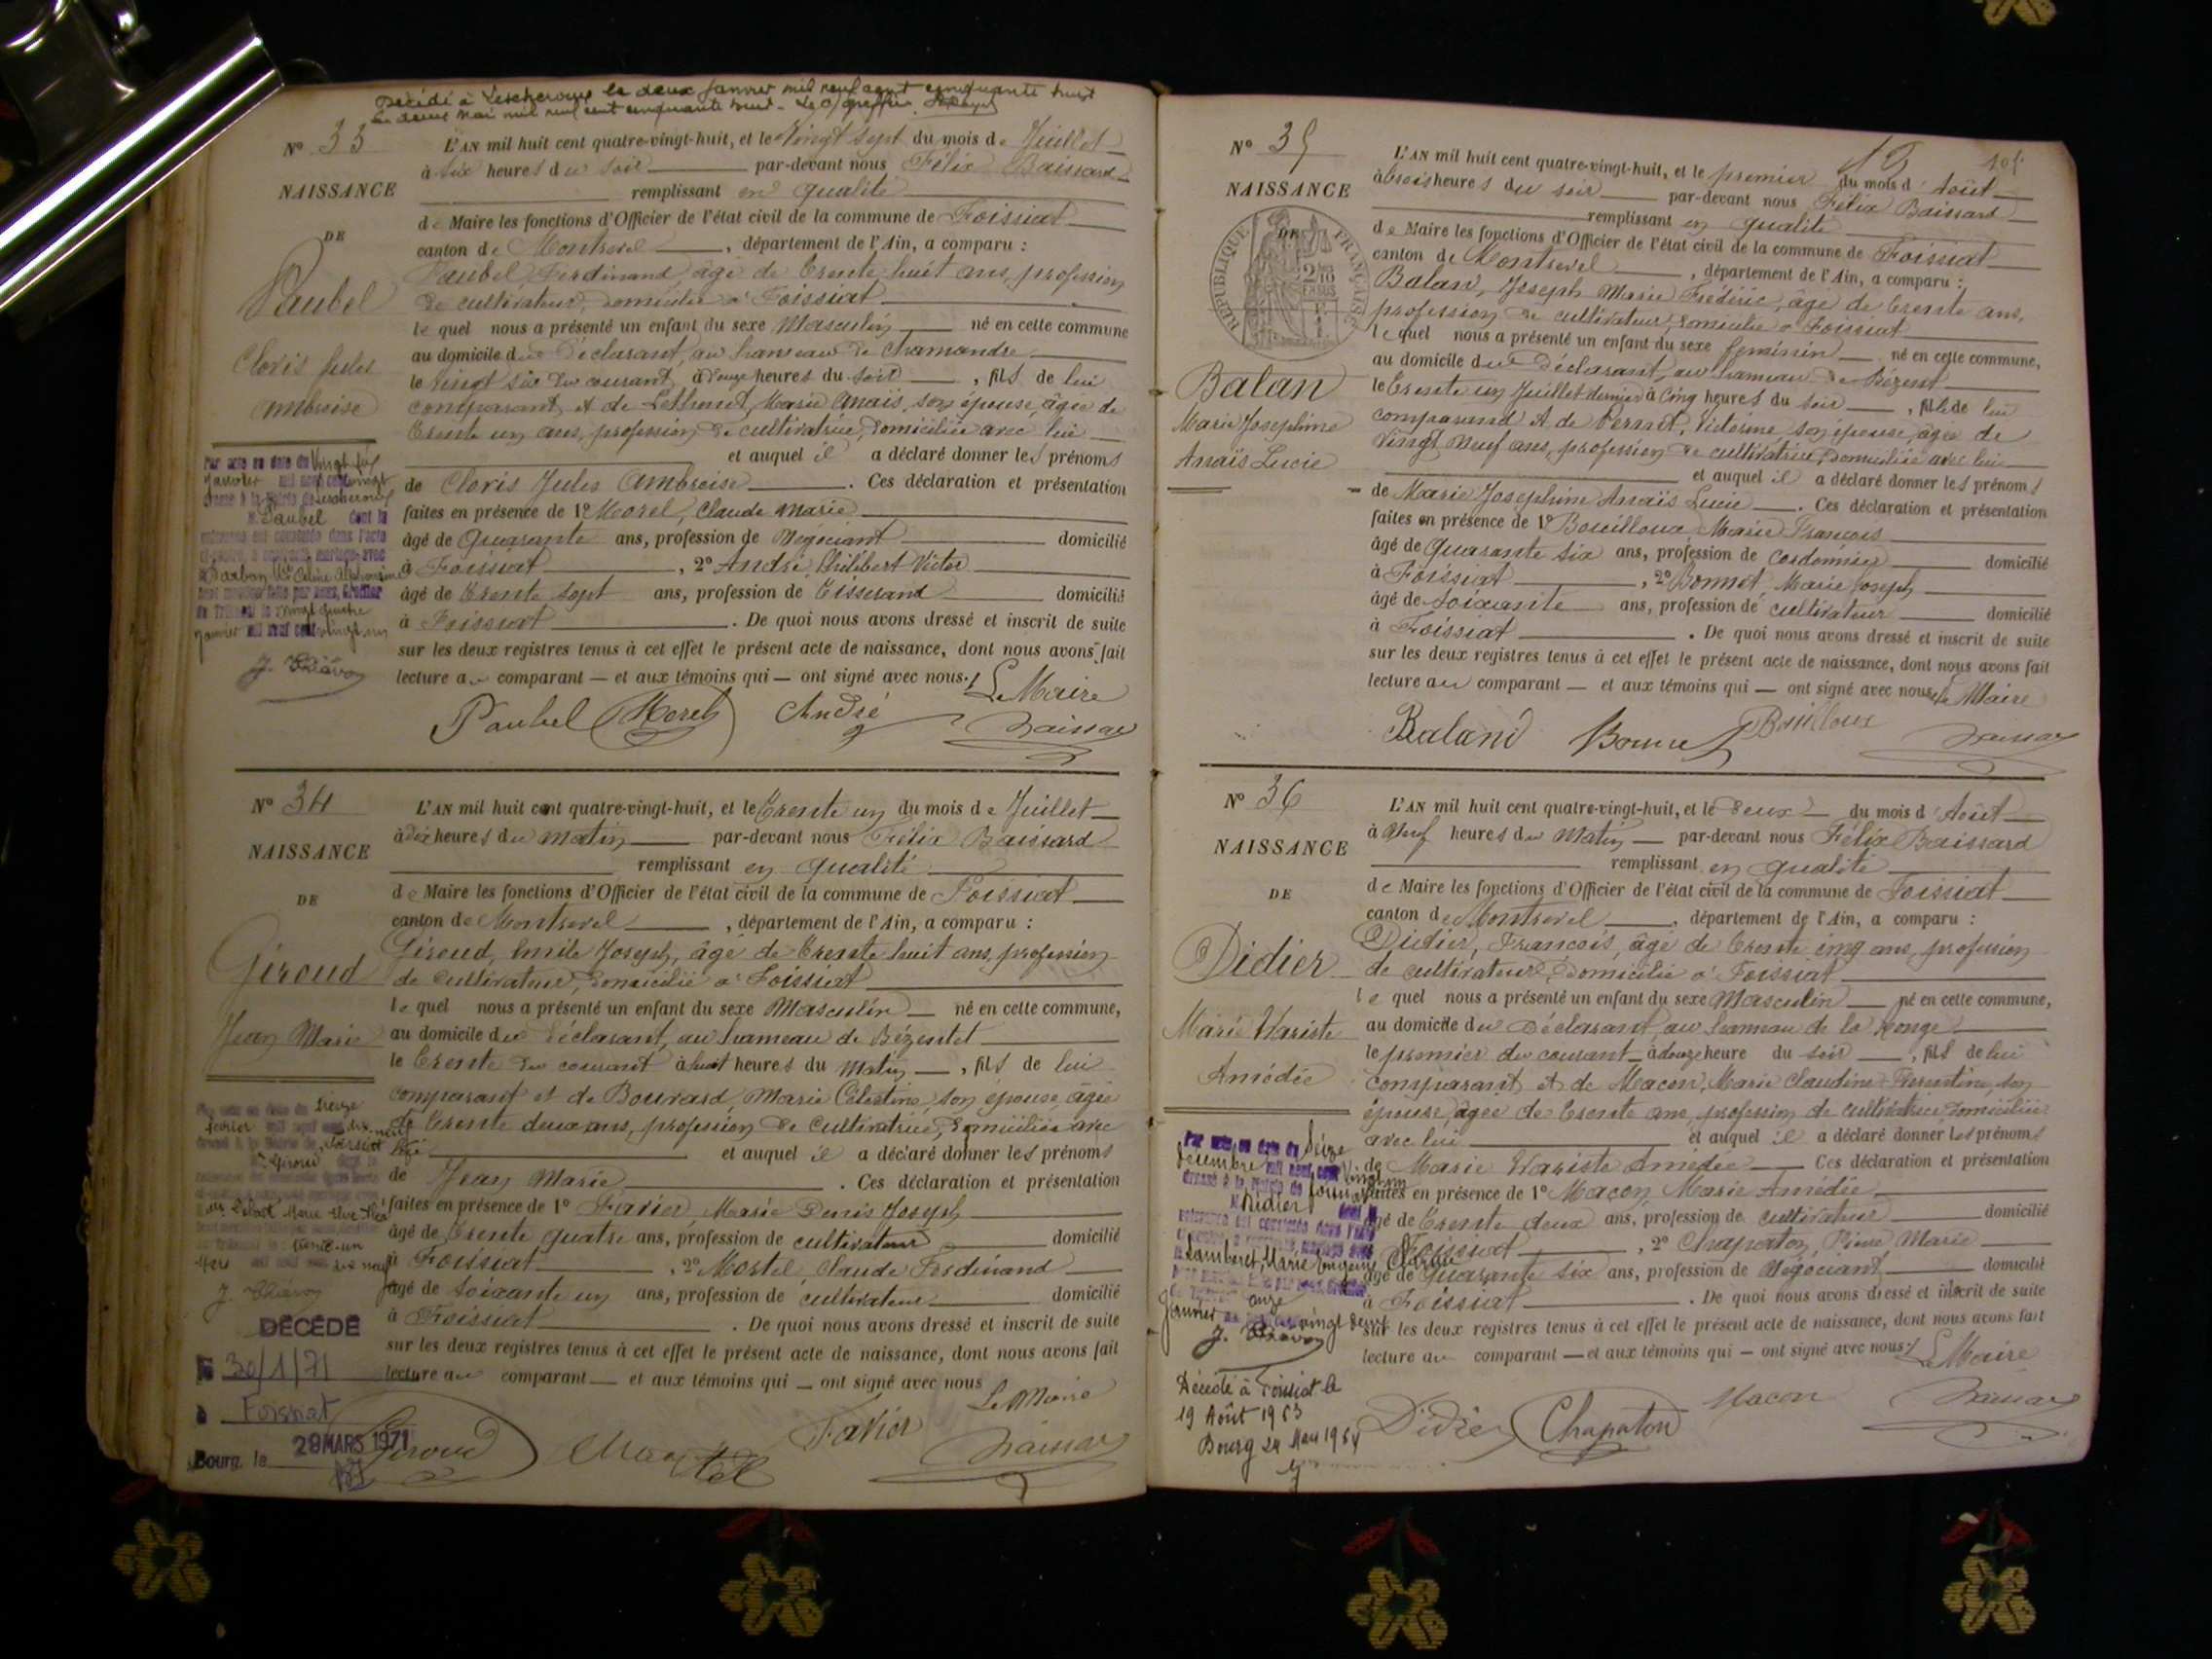 Décédé à Lescheroux le deux Janvier mil neuf cent cinquante huit
le deux Mai mil neuf cent cinquante huit - Le greffier
N° 33
NAISSANCE
DE
Paubel
Cloris Jules
Ambroise
L'AN mil huit cent quatre-vingt-huit, et le Vingt sept du mois de Juillet
à six heures du soir par-devant nous Félix Baissard
remplissant en qualité
de Maire les fonctions d'Officier de l'état civil de la commune de Foissiat
canton de Montrevel, département de l'Ain, a comparu :
Paubel, Ferdinand, âgé de trente huit ans, profession
de cultivateur, domicilié à Foissiat
le quel nous a présenté un enfant du sexe Masculin né en cette commune
au domicile du Déclarant, au hameau de Chamandre
le vingt six du courant, à douze heures du soir, fils de lui
comparant, et de Marie Anais, son épouse, âgée de
trente un ans, profession de cultivatrice, domiciliée avec lui
et auquel il a déclaré donner les prénoms
de Cloris Jules Ambroise. Ces déclaration et présentation
faites en présence de 1° Morel, Claude Marie
âgé de Quarante ans, profession de Négociant domicilié
à Foissiat, 2° André Philibert Victor
âgé de trente sept ans, profession de Tisserand domicilié
à Foissiat. De quoi nous avons dressé et inscrit de suite
sur les deux registres tenus à cet effet le présent acte de naissance, dont nous avons fait
lecture au comparant — et aux témoins qui — ont signé avec nous. Le Maire
Paubel Morel André Baissard
Par acte en date du vingt
janvier mil neuf cent vingt
dressé à la Mairie de Lescheroux
M. Paubel dont la
naissance est constatée dans l'acte
ci-contre, a contracté mariage avec
Darbon Céline Alphonsine
du Tribunal le vingt quatre
janvier mil neuf cent vingt un
N° 34
NAISSANCE
DE
Giroud
Jean Marie
L'AN mil huit cent quatre-vingt-huit, et le trente un du mois de Juillet
à dix heures du matin par-devant nous Félix Baissard
remplissant en qualité
de Maire les fonctions d'Officier de l'état civil de la commune de Foissiat
canton de Montrevel, département de l'Ain, a comparu :
Giroud, Emile Joseph, âgé de trente huit ans, profession
de cultivateur, domicilié à Foissiat
le quel nous a présenté un enfant du sexe Masculin né en cette commune,
au domicile du Déclarant, au hameau de Bézentet
le trente du courant à huit heures du matin, fils de lui
comparant et de Bouvard, Marie Célestine, son épouse, âgée
de trente deux ans, profession de cultivatrice, domiciliée avec
lui et auquel il a déclaré donner les prénoms
de Jean Marie. Ces déclaration et présentation
faites en présence de 1° Favier, Marie Denis Joseph
âgé de trente quatre ans, profession de cultivateur domicilié
à Foissiat, 2° Mortel, Claude Ferdinand
âgé de soixante un ans, profession de cultivateur domicilié
à Foissiat. De quoi nous avons dressé et inscrit de suite
sur les deux registres tenus à cet effet le présent acte de naissance, dont nous avons fait
lecture au comparant — et aux témoins qui — ont signé avec nous
Le Maire
Giroud Favier Baissard
février
Giroud
DÉCÉDÉ
le 30/1/71
à Foissiat
Bourg, le 29 MARS 1971
105
N° 35
NAISSANCE
DE
RÉPUBLIQUE FRANÇAISE
Balan
Marie Joséphine
Anaïs Lucie
L'AN mil huit cent quatre-vingt-huit, et le premier du mois d'Août
à trois heures du soir par-devant nous Félix Baissard
remplissant en qualité
de Maire les fonctions d'Officier de l'état civil de la commune de Foissiat
canton de Montrevel, département de l'Ain, a comparu :
Balan, Joseph Marie Frédéric, âgé de trente ans,
profession de cultivateur, domicilié à Foissiat
le quel nous a présenté un enfant du sexe féminin né en cette commune,
au domicile du Déclarant, au hameau de Bézent
le trente un Juillet dernier à cinq heures du soir, fille de lui
comparand et de Pernet, Victorine son épouse, âgée de
vingt neuf ans, profession de cultivatrice, domiciliée avec lui
et auquel il a déclaré donner les prénoms
de Marie Joséphine Anaïs Lucie. Ces déclaration et présentation
faites en présence de 1° Bouilloux Marie François
âgé de quarante six ans, profession de cordonnier domicilié
à Foissiat, 2° Bonnet, Marie Joseph
âgé de soixante ans, profession de cultivateur domicilié
à Foissiat. De quoi nous avons dressé et inscrit de suite
sur les deux registres tenus à cet effet le présent acte de naissance, dont nous avons fait
lecture au comparant — et aux témoins qui — ont signé avec nous. Le Maire
Baland Bonnet Bouilloux Baissard
N° 36
NAISSANCE
DE
Didier
Marie Variste
Amédée
L'AN mil huit cent quatre-vingt-huit, et le deux du mois d'Août
à neuf heures du matin par-devant nous Félix Baissard
remplissant en qualité
de Maire les fonctions d'Officier de l'état civil de la commune de Foissiat
canton de Montrevel, département de l'Ain, a comparu :
Didier, François, âgé de trente cinq ans, profession
de cultivateur, domicilié à Foissiat
le quel nous a présenté un enfant du sexe Masculin né en cette commune,
au domicile du Déclarant, au hameau de la
le premier du courant à douze heure du soir, fils de lui
comparant et de Macon, Marie Claudine son
épouse, âgée de trente ans, profession de cultivatrice domiciliée
avec lui et auquel il a déclaré donner les prénoms
de Marie Variste Amédée Ces déclaration et présentation
faites en présence de 1° Macon Marie Amédée
âgé de trente deux ans, profession de cultivateur domicilié
à Foissiat, 2° Chapaton, Pierre Marie
âgé de Quarante six ans, profession de Négociant domicilié
à Foissiat. De quoi nous avons dressé et inscrit de suite
sur les deux registres tenus à cet effet le présent acte de naissance, dont nous avons fait
lecture au comparant — et aux témoins qui — ont signé avec nous. Le Maire
Didier Chapaton Macon Baissard
Par acte en date du seize
décembre mil neuf cent vingt un
dressé à la Mairie de
M. Didier dont la
naissance est constatée dans l'acte
Lamberet, Marie Eugénie
onze
Janvier vingt deux
Décédé à Foissiat le
19 Août 1963
Bourg 24 Mars 1964